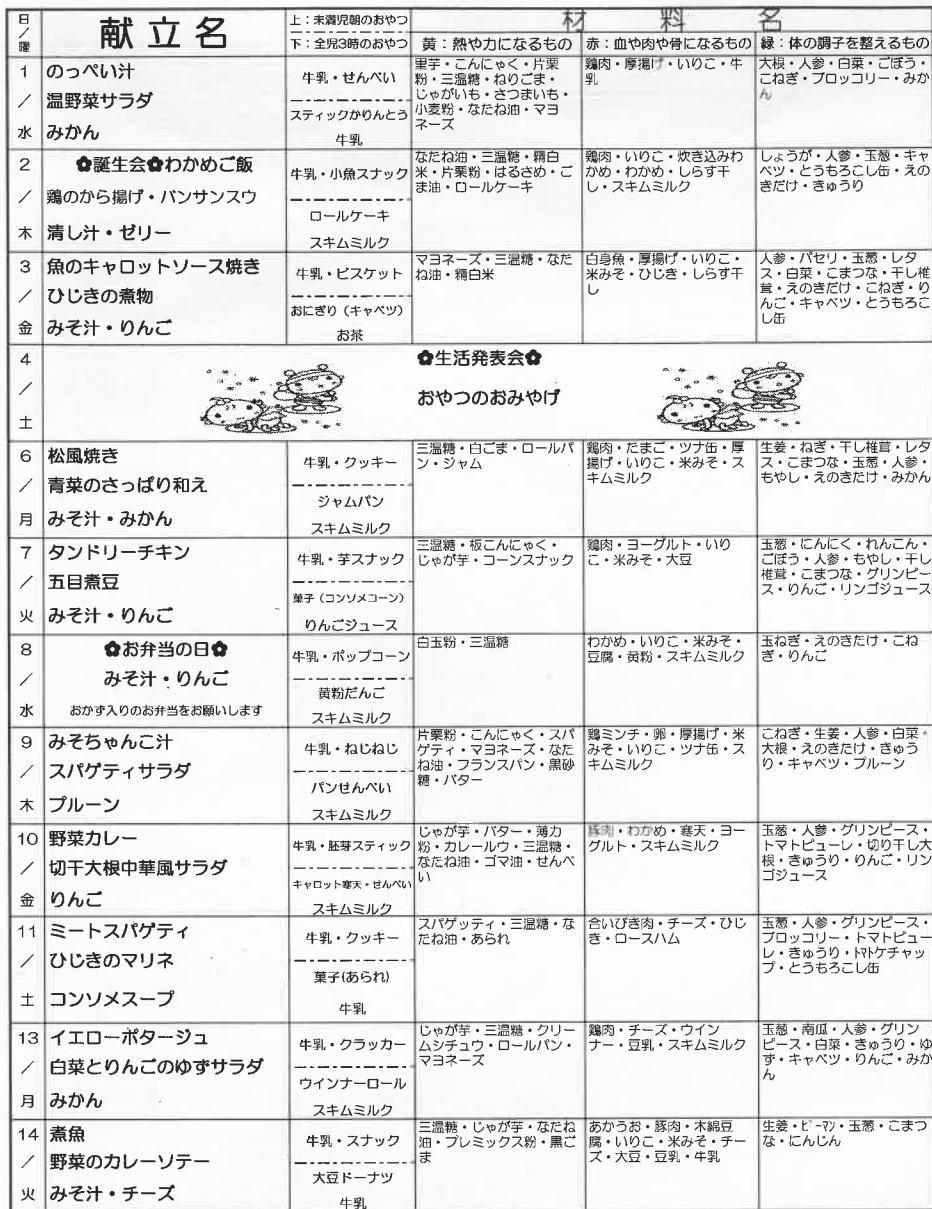 日/曜
献立名
上：未満児朝のおやつ
下：全児3時のおやつ
材料名
黄：熱や力になるもの
赤：血や肉や骨になるもの
緑：体の調子を整えるもの
1
/
水
のっぺい汁
温野菜サラダ
みかん
牛乳・せんべい
スティックかりんとう
牛乳
里芋・こんにゃく・片栗
粉・三温糖・ねりごま・
じゃがいも・さつまいも・
小麦粉・なたね油・マヨ
ネーズ
鶏肉・厚揚げ・いりこ・牛
乳
大根・人参・白菜・ごぼう・
こねぎ・ブロッコリー・みか
ん
2
/
木
✿誕生会✿わかめご飯
鶏のから揚げ・バンサンスウ
清し汁・ゼリー
牛乳・小魚スナック
ロールケーキ
スキムミルク
なたね油・三温糖・精白
米・片栗粉・はるさめ・ご
ま油・ロールケーキ
鶏肉・いりこ・炊き込みわ
かめ・わかめ・しらす干
し・スキムミルク
しょうが・人参・玉葱・キャ
ベツ・とうもろこし缶・えの
きだけ・きゅうり
3
/
金
魚のキャロットソース焼き
ひじきの煮物
みそ汁・りんご
牛乳・ビスケット
おにぎり（キャベツ）
お茶
マヨネーズ・三温糖・なた
ね油・精白米
白身魚・厚揚げ・いりこ・
米みそ・ひじき・しらす干
し
人参・パセリ・玉葱・レタ
ス・白菜・こまつな・干し椎
茸・えのきだけ・こねぎ・り
んご・キャベツ・とうもろこ
し缶
4
/
土
✿生活発表会✿
おやつのおみやげ
6
/
月
松風焼き
青菜のさっぱり和え
みそ汁・みかん
牛乳・クッキー
ジャムパン
スキムミルク
三温糖・白ごま・ロールパ
ン・ジャム
鶏肉・たまご・ツナ缶・厚
揚げ・いりこ・米みそ・ス
キムミルク
生姜・ねぎ・干し椎茸・レタ
ス・こまつな・玉葱・人参・
もやし・えのきたけ・みかん
7
/
火
タンドリーチキン
五目煮豆
みそ汁・りんご
牛乳・芋スナック
菓子（コンソメコーン）
りんごジュース
三温糖・板こんにゃく・
じゃが芋・コーンスナック
鶏肉・ヨーグルト・いり
こ・米みそ・大豆
玉葱・にんにく・れんこん・
ごぼう・人参・もやし・干し
椎茸・こまつな・グリンピー
ス・りんご・リンゴジュース
8
/
水
✿お弁当の日✿
みそ汁・りんご
おかず入りのお弁当をお願いします
牛乳・ポップコーン
黄粉だんご
スキムミルク
白玉粉・三温糖
わかめ・いりこ・米みそ・
豆腐・黄粉・スキムミルク
玉ねぎ・えのきたけ・こね
ぎ・りんご
9
/
木
みそちゃんこ汁
スパゲティサラダ
プルーン
牛乳・ねじねじ
パンせんべい
スキムミルク
片栗粉・こんにゃく・スパ
ゲティ・マヨネーズ・なた
ね油・フランスパン・黒砂
糖・バター
鶏ミンチ・卵・厚揚げ・米
みそ・いりこ・ツナ缶・ス
キムミルク
こねぎ・生姜・人参・白菜・
大根・えのきたけ・きゅう
り・キャベツ・プルーン
10
/
金
野菜カレー
切干大根中華風サラダ
りんご
牛乳・胚芽スティック
キャロット寒天・せんべい
スキムミルク
じゃが芋・バター・薄力
粉・カレールウ・三温糖・
なたね油・ゴマ油・せんべ
い
豚肉・わかめ・寒天・ヨー
グルト・スキムミルク
玉葱・人参・グリンピース・
トマトピューレ・切り干し大
根・きゅうり・りんご・リン
ゴジュース
11
/
土
ミートスパゲティ
ひじきのマリネ
コンソメスープ
牛乳・クッキー
菓子(あられ)
牛乳
スパゲッティ・三温糖・な
たね油・あられ
合いびき肉・チーズ・ひじ
き・ロースハム
玉葱・人参・グリンピース・
ブロッコリー・トマトピュー
レ・きゅうり・トマトケチャッ
プ・とうもろこし缶
13
/
月
イエローポタージュ
白菜とりんごのゆずサラダ
みかん
牛乳・クラッカー
ウインナーロール
スキムミルク
じゃが芋・三温糖・クリー
ムシチュウ・ロールパン・
マヨネーズ
鶏肉・チーズ・ウイン
ナー・豆乳・スキムミルク
玉葱・南瓜・人参・グリン
ピース・白菜・きゅうり・ゆ
ず・キャベツ・りんご・みか
ん
14
/
火
煮魚
野菜のカレーソテー
みそ汁・チーズ
牛乳・スナック
大豆ドーナツ
牛乳
三温糖・じゃが芋・なたね
油・プレミックス粉・黒ご
ま
あかうお・豚肉・木綿豆
腐・いりこ・米みそ・チー
ズ・大豆・豆乳・牛乳
生姜・ピーマン・玉葱・こまつ
な・にんじん